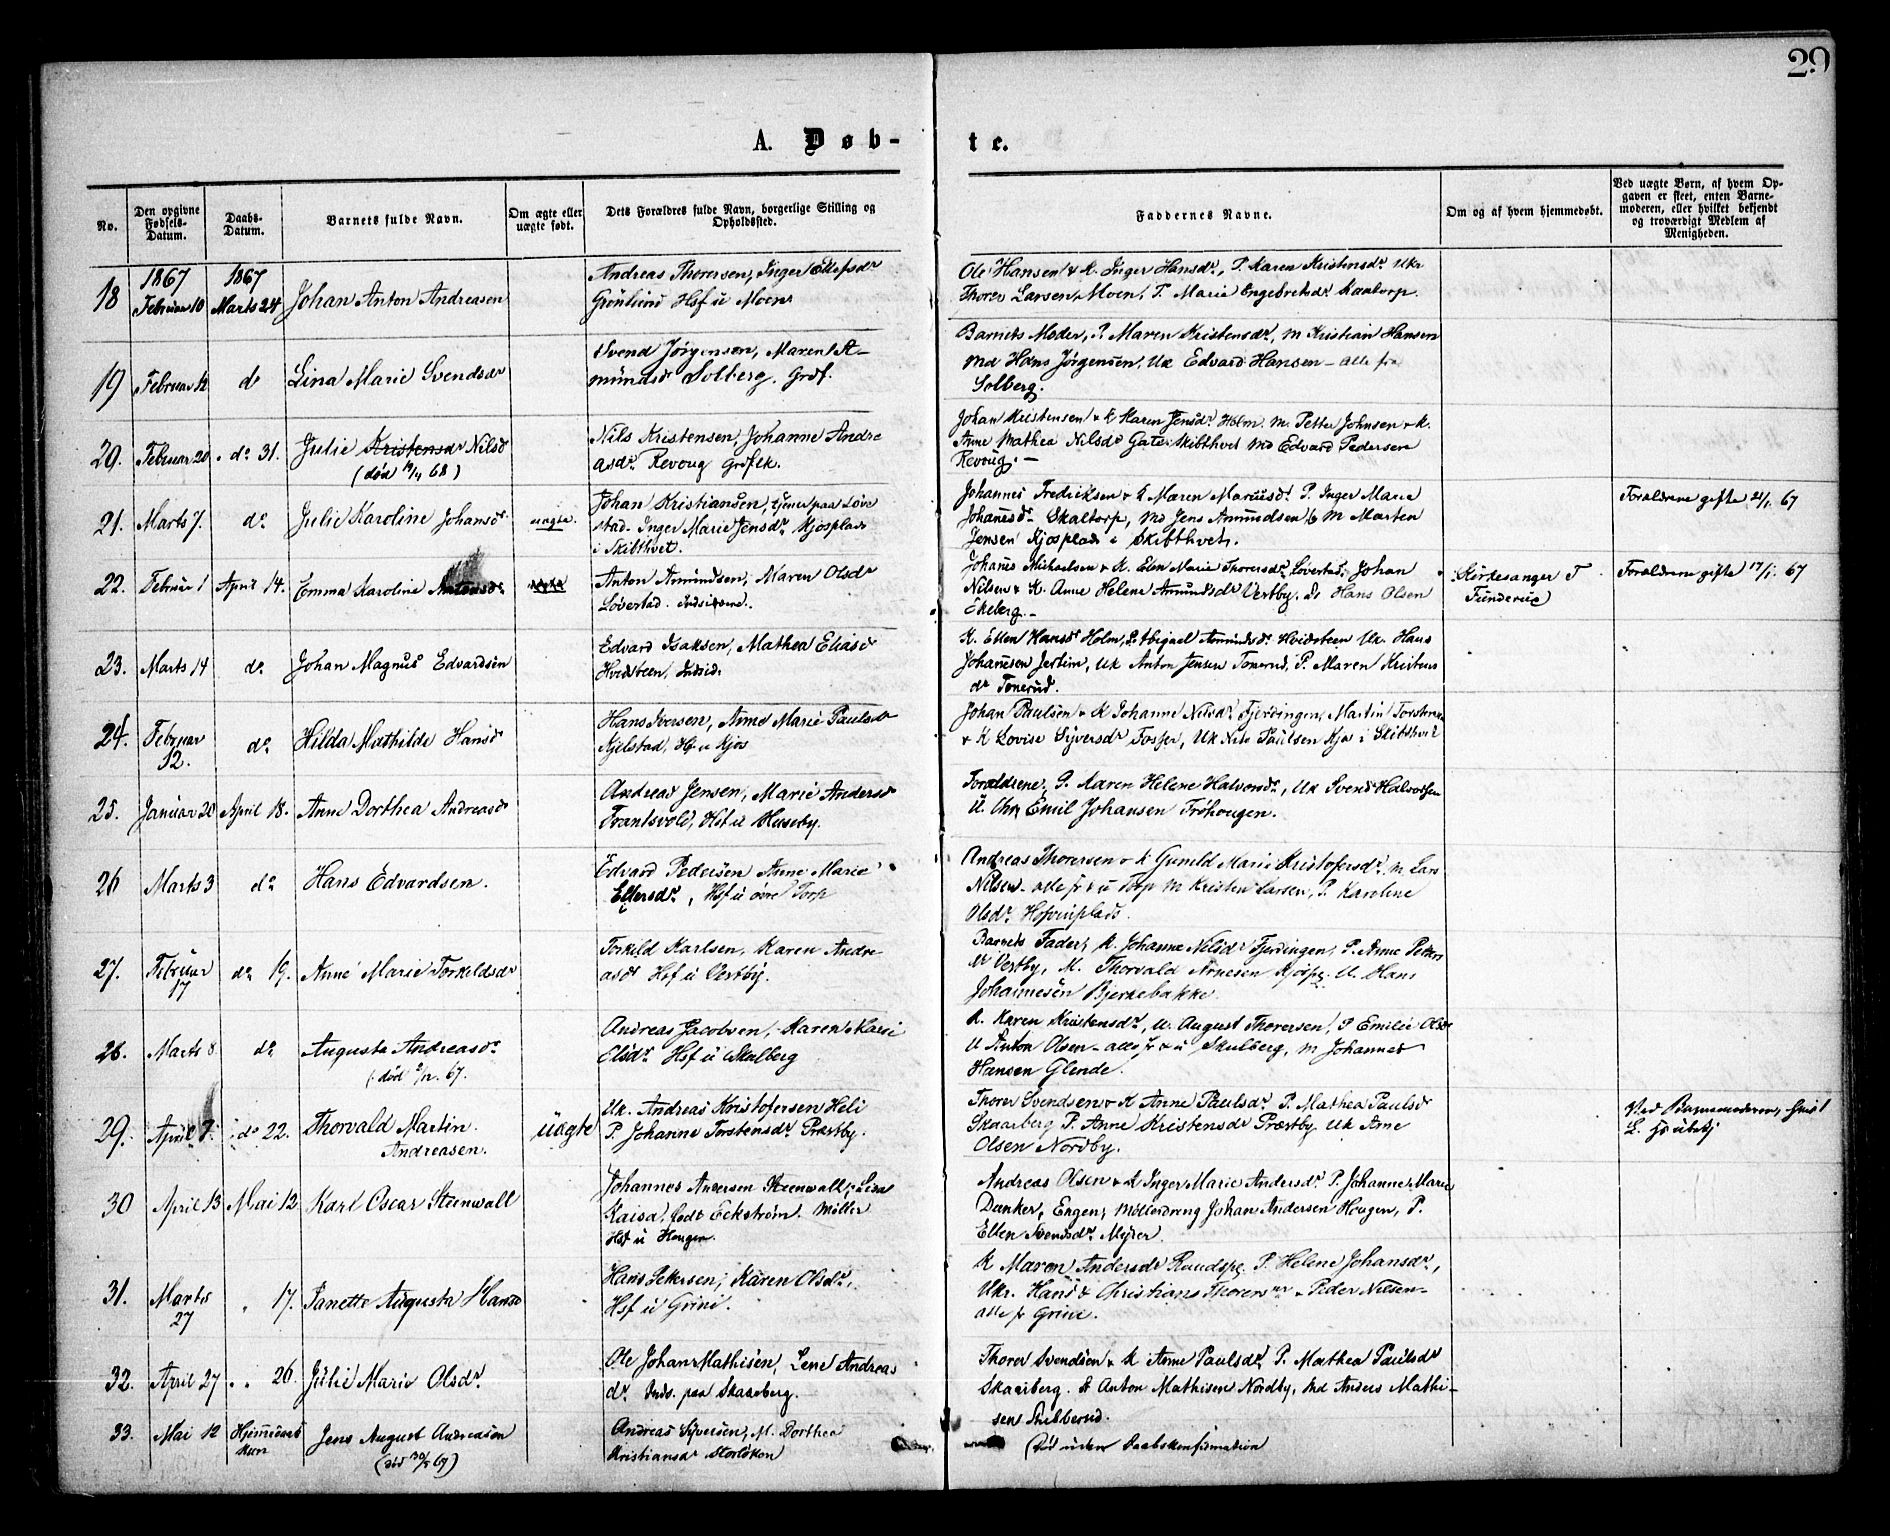 29
A. Døb-
te.
No.
Den opgivne Fødsels-Datum.
Daabs-Datum.
Barnets fulde Navn.
Om ægte eller uægte født.
Dets Forældres fulde Navn, borgerlige Stilling og Opholdssted.
Faddernes Navne.
Om og af hvem hjemmedøbt.
Ved uægte Børn, af hvem Opgaven er skeet, enten Barnemoderen, eller hvilket bekjendt og troværdigt Medlem af Menigheden.
1867
1867
18
Februar 10
Marts 24
Johan Anton Andreasen
Andreas Thorersen, Inger
Grönlund Hsf u Moen
Ole Hansen & K. Inger Hansdr, P. Karen Kristensdr Uk
Thorer Larsen, Moen, P. Marie Engebretsdr Kaatorp.
19
Februar 12
do
Lina Marie Svendsdr
Svend Jörgensen, Maren A-
mundsdr Solberg. Grdf.
Barnets Moder, P. Maren Kristensdr, M Kristian Hansen
Md Hans Jörgensen, Uk Edvard Hansen – alle fra
Solberg.
20.
Februar 20
do 31.
Julie Kristensdr Nilsd
(död 19/4 68)
Nils Kristensen, Johanne Andre
asdr. Revoug Grdflk.
Johan Kristensen & K Karen Jensdr Holm. M. Petter Johnsen & K.
Anne Mathea Nilsdr Gater Skibthvet Md Edvard Pedersen
Revoug. –
21.
Marts 7.
do
Julie Karoline Johansdr
uægte.
Johan Kristiansen, tjener paa Löve
stad. Inger Marie Jensdr Kjosplads
i Skibthvet.
Johannes Fredriksen & K Maren Mariusdr P. Inger Marie
Johansdr Skaltorp, Md Jens Amundsen & M Marten
Jensen Kjosplads i Skibthvet.
Forældrene gifte 21/1. 67
22.
Februar 1
April 14.
Emma Karoline Antonsdr
Anton Amundsen, Maren Olsdr
Lövestad. Indsidderne.
Johanes Michaelsen & K. Elen Marie Thorersdr Lövestad, Johan
Nilsen & K. Anne Helene Amundsdr Vestby. Hans Olsen
Ekeberg. –
Kirkesanger T
Forældrene gifte 17/1. 67
23.
Marts 14
do
Johan Magnus Edvardsen
Edvard Isaksen, Mathea Eliasd
Hvidsteen, Indsid.
K. Ellen Hansdr Holm, P. Abigael Amundsdr Hvidsteen Uk. Hans
Johanesen Jertim, Uk Anton Jensen Tonerud, P. Maren Kristens
dr Tonerud.
24.
Februar
12.
do
Hilda Mathilde Hansd
Hans Iversen, Anne Marie Paulsdr
Kjelstad, Hf u Kjos
Johan Paulsen & K Johanne Nilsdr Fjerdingen, Martin Torstensen
& K Lovise Syversdr Torper, Uk Nils Paulsen Kjos i Skibthvet
25.
Januar 28
April 18.
Anne Dorthea Andreasdr
Andreas Jensen, Marie Andersd
Trantsvold, Hsf u Huseby.
Forældrene, P. Karen Helene Halvorsdr, Uk Svend Halvorsen
U. Chr Emil Johansen Fröhougen.
26
Marts 3
do
Hans Edvardsen.
Edvard Pedersen Anne Marie
Ellersdr, Hsf u övre Torp
Andreas Thorersen & K Gunild Marie Kristofersdr M Lars
Nilsen – alle fr & u Torp M Kristen Larsen, P. Karoline
Olsdr Hofvinplads.
27.
Februar
17
do 19.
Anne Marie Torkeldsdr
Torkeld Karlsen, Karen Andre
asdr Hsf u Vestby.
Barnets Fader, K. Johanne Nilsdr Fjerdingen, P. Anne Peters
dr Vestby, M. Thorvald Arnesen Kjos. U. Hans
Johannesen Bjerkebakke.
28.
Marts 8
do
Augusta Andreasdr
(: död 9/12. 67.
Andreas Jacobsen, Karen Marie
Olsdr. Hsf u Skulberg
K. Karen Kristensdr, U. August Thorersen, P Emilie Olsdr
U Anton Olsen – alle fr & u Skulberg, M Johannes
Hansen Glende.
29.
April 7.
do 22.
Thorvald Martin
Andreasen.
uægte
Uk. Andreas Kristofersen Heli
P. Johanne Torstensdr Præstby.
Thorer Svendsen & K Anne Paulsdr P. Mathea Paulsd
Skaarberg P. Anne Kristensdr Præstby Uk Arne
Olsen Nordby.
Ved Barnemoderen,
30
April 13
Mai 12
Karl Oscar Steenwall
Johannes Andersen Steenwall, Lisa
Kaisa, född Eckström. Möller
Hsf u Hougen.
Andreas Olsen & K Inger Marie Andersdr P. Johanne Marie
Dunker, Engen, Möllerdreng Johan Andersen Hougen, P.
Ellen Svendsdr Myrer.
31.
Marts
27
" 17.
Janette Augusta Hansd
Hans Pettersen, Karen Olsdr,
Hsf u Grini.
K Maren Andersdr Rundspg P. Helene Johansdr,
Ukr. Hans & Christians Thorersenner & Peder Nilsen –
alle fr Grini.
32.
April 27
" " 26.
Julie Marie Olsdr.
Ole Johan Mathisen, Lene Andreas
dr. Inds. paa Skaarberg.
Thorer Svendsen & K Anne Paulsdr, P. Mathea Paulsdr
Skaarberg. & Anton Mathisen Nordby, Md Anders Mathi-
sen Stubberud.
33.
Mai 12
Hjemmedøbt
kun
Jens August Andreasen
(död 30/5 67)
Andreas Syversen, M. Dorthea
Kristiansdr Storlökon
(Död uden Daabskonfirmation